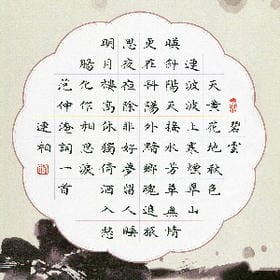 碧雲
天黄花地秋色
連波波上寒煙翠山
暎斜陽天接水芳草無情
更在斜陽外黯鄉魂追旅
思夜夜除非好夢留人睡
明月樓高休獨倚酒入愁
腸化作相思淚
范仲淹詞一首